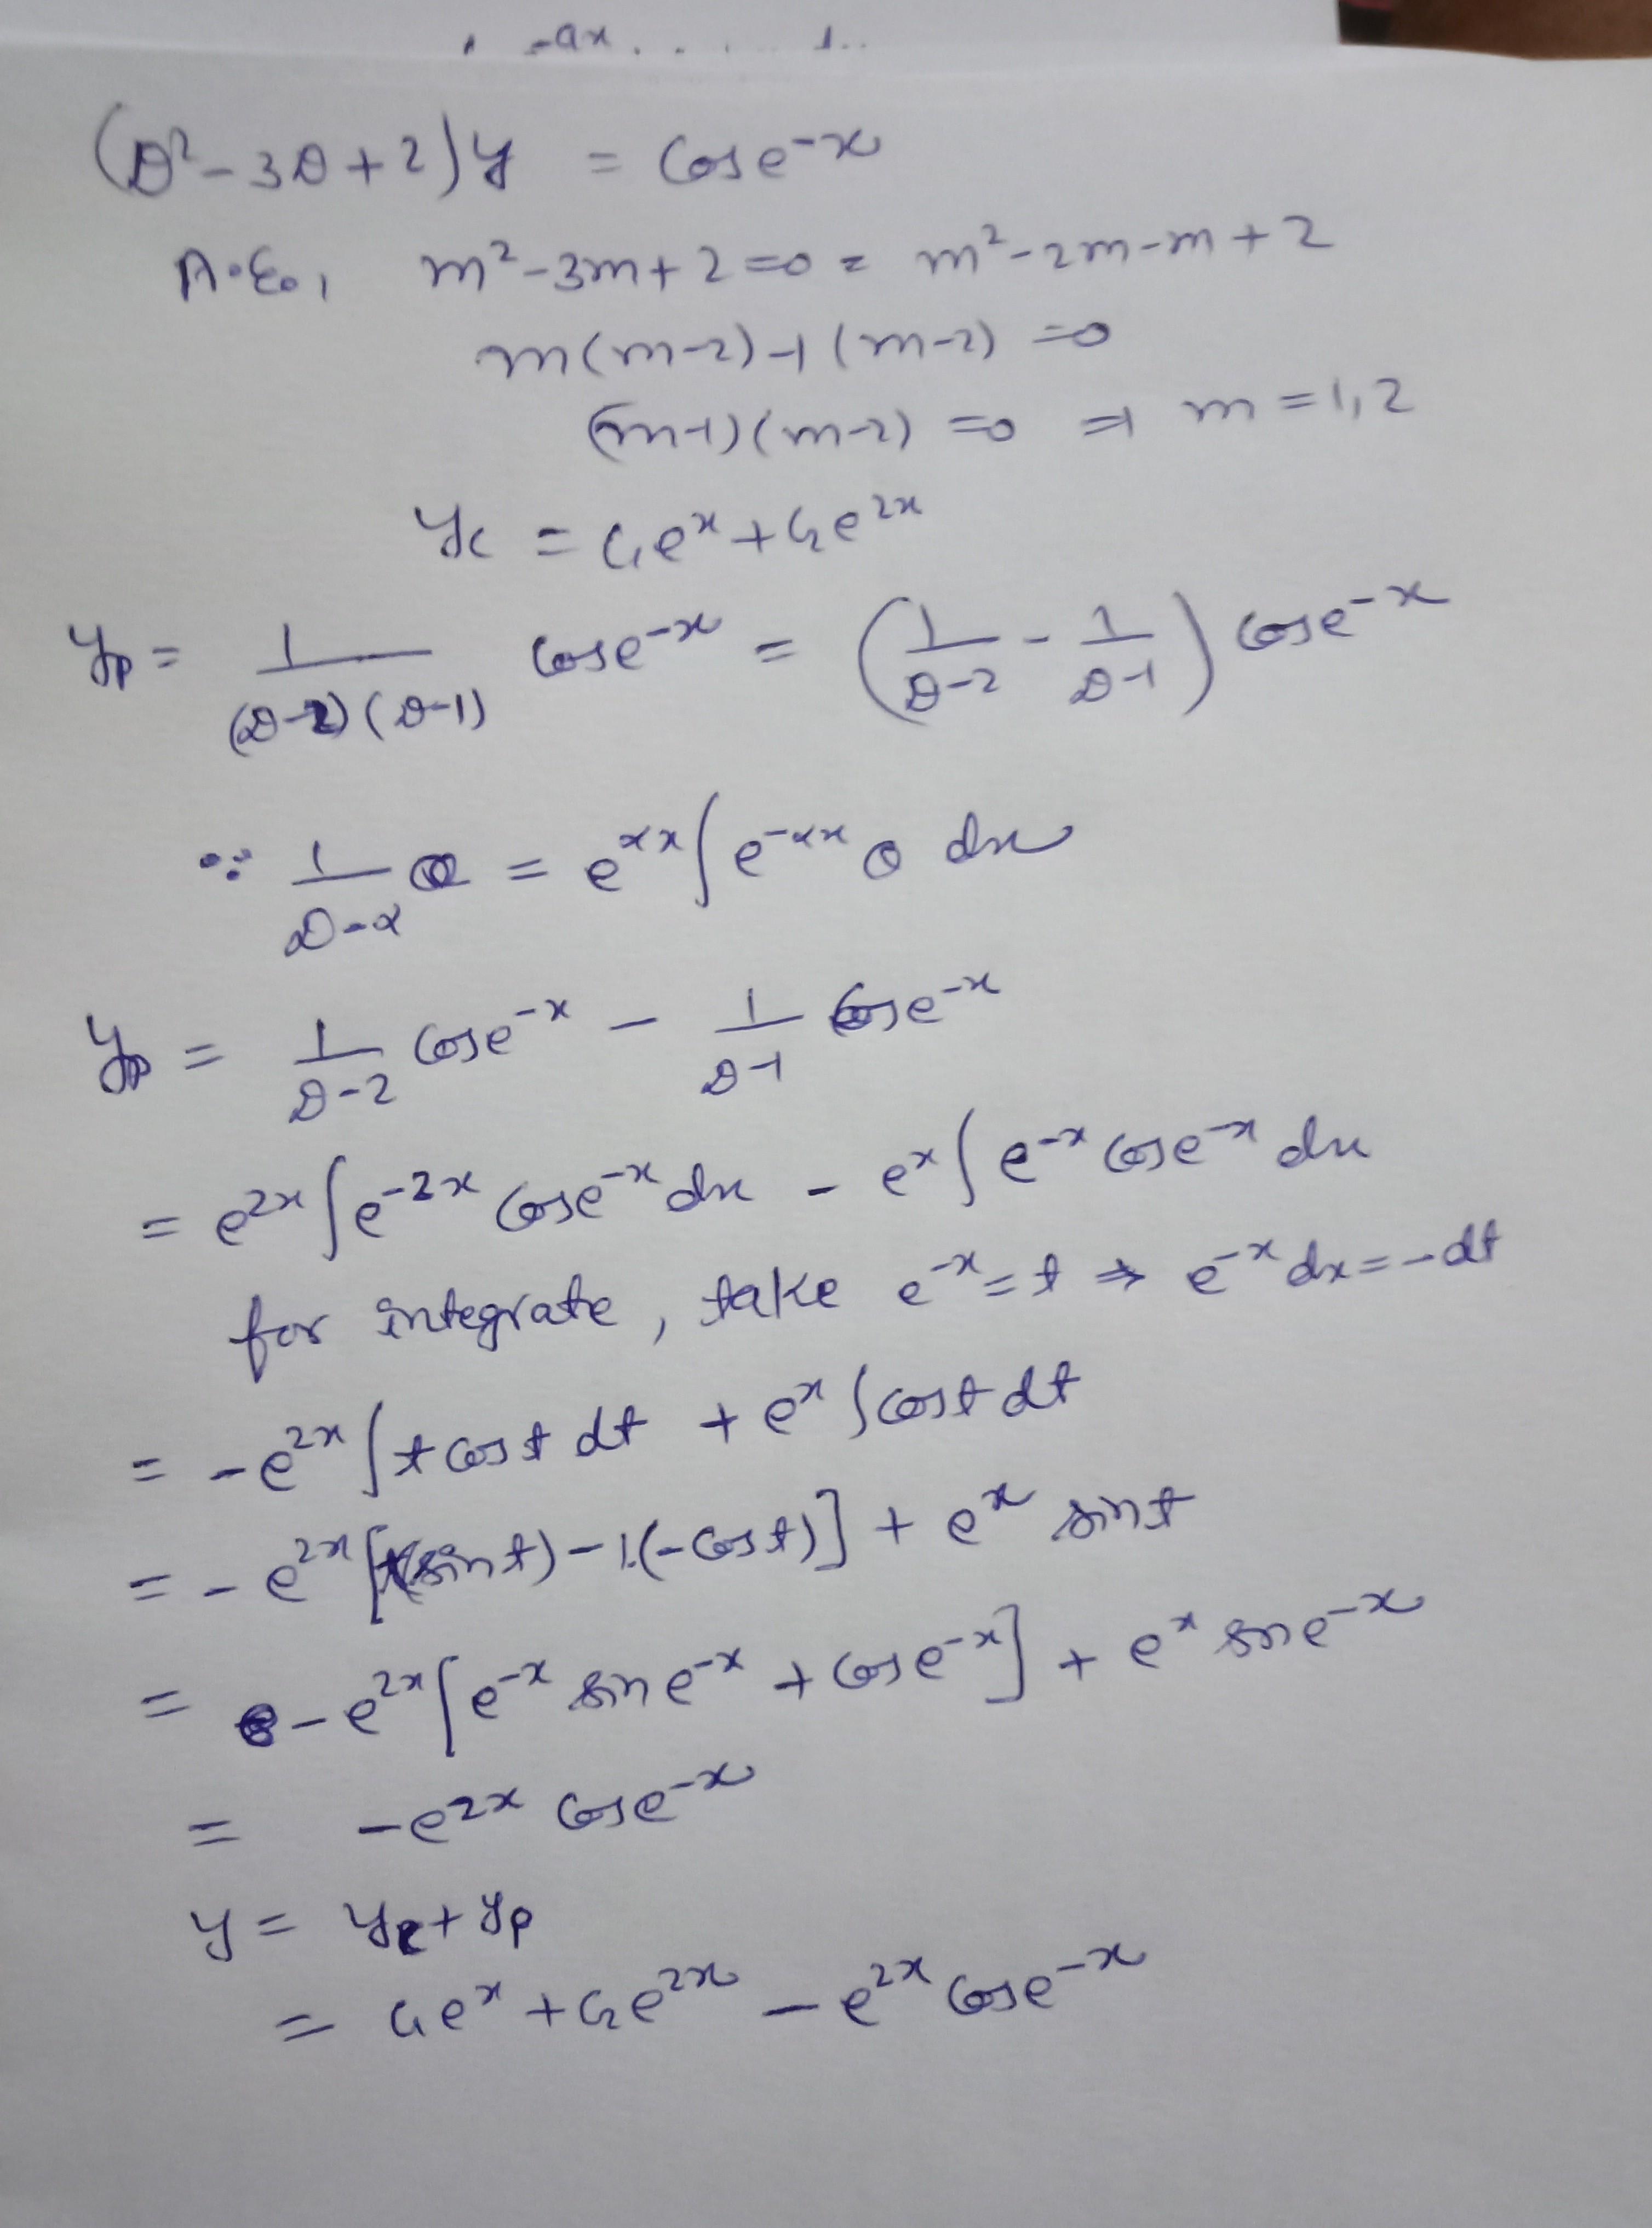 -ax
(D²-3D+2)y = Cos e^-x
A.E., m²-3m+2=0 = m²-2m-m+2
m(m-2)-1(m-2)=0
(m-1)(m-2)=0 ⇒ m=1,2
y_c = C₁e^x+C₂e^2x
y_p = 1/((D-2)(D-1)) Cos e^-x = (1/(D-2) - 1/(D-1)) Cos e^-x
∵ 1/(D-α) Q = e^αx ∫e^-αx Q dx
y_p = 1/(D-2) Cos e^-x - 1/(D-1) Cos e^-x
= e^2x ∫e^-2x Cos e^-x dx - e^x ∫e^-x Cos e^-x dx
for integrate, take e^-x=t ⇒ e^-x dx=-dt
= -e^2x ∫t Cos t dt + e^x ∫cos t dt
= -e^2x [t(sin t)-1.(-Cos t)] + e^x sin t
= -e^2x [e^-x sin e^-x + Cos e^-x] + e^x sin e^-x
= -e^2x Cos e^-x
y = y_c+y_p
= C₁e^x+C₂e^2x - e^2x Cos e^-x